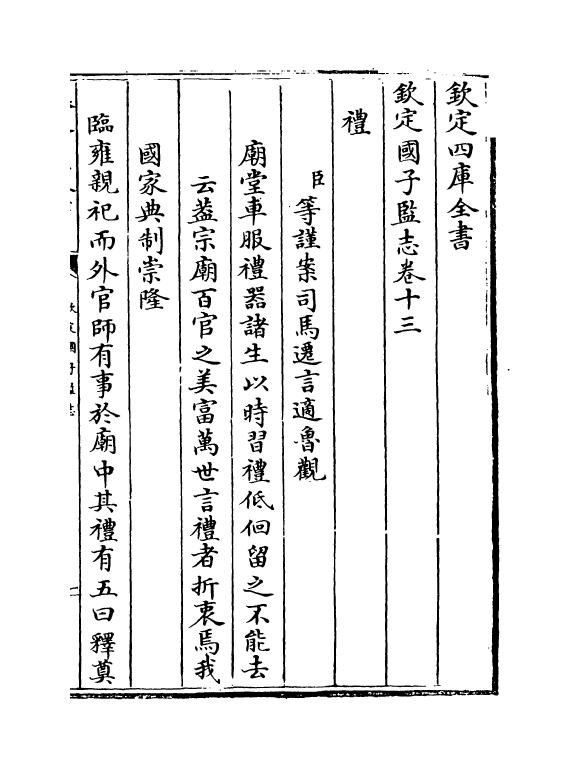 欽定四庫全書
欽定國子監志卷十三
禮
臣等謹案司馬遷言適魯觀
廟堂車服禮器諸生以時習禮低佪留之不能去
云葢宗廟百官之美富萬世言禮者折衷焉我
國家典制崇隆
臨雍親祀而外官師有事於廟中其禮有五曰釋奠
欽定國子監志